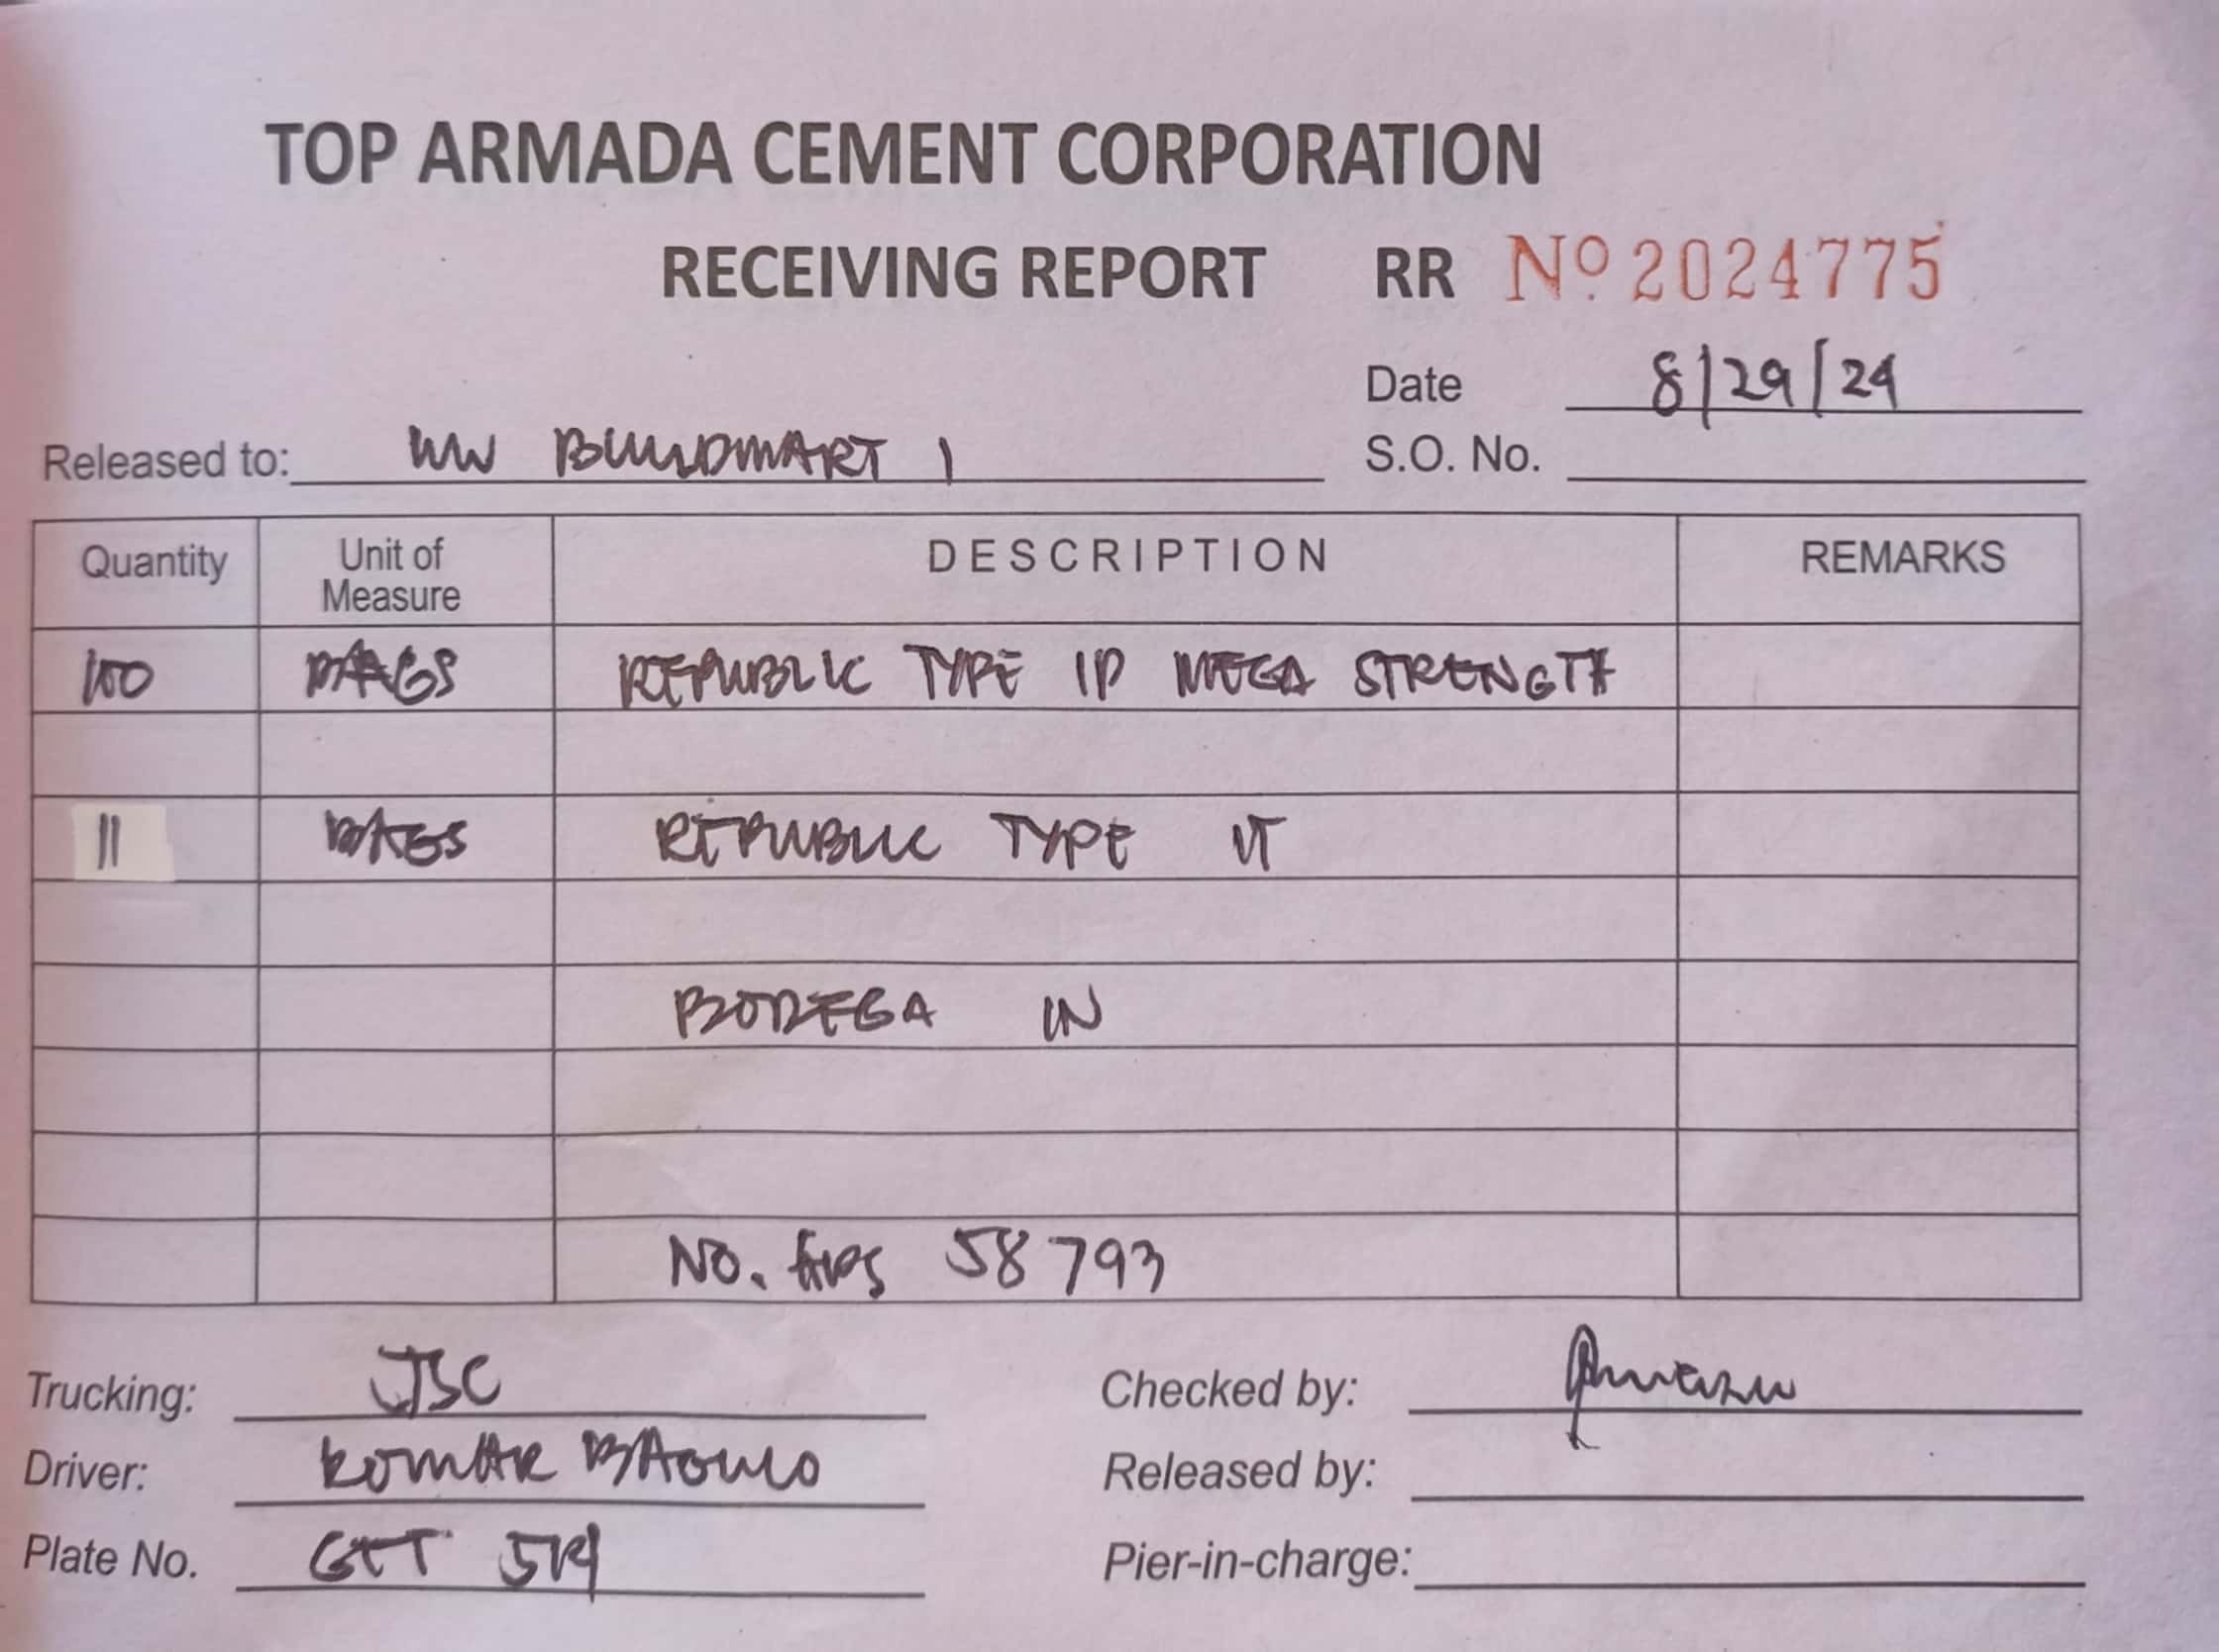 TOP ARMADA CEMENT CORPORATION
RECEIVING REPORT RR Nº 2024775
Date 8/29/24
Released to: WW BUILDMART 1 S.O. No.
Quantity Unit of Measure DESCRIPTION REMARKS
100 BAGS REPUBLIC TYPE IP MEGA STRENGTH
11 BAGS REPUBLIC TYPE IT
BODEGA IN
NO. 58793
Trucking: JSC Checked by:
Driver: ROMAR Released by:
Plate No. Pier-in-charge: